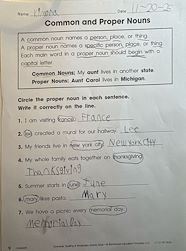 Name Kianna Date 11-20-25
Common and Proper Nouns
A common noun names a person, place, or thing.
A proper noun names a specific person, place, or thing.
Each main word in a proper noun should begin with a
capital letter.
Common Nouns: My aunt lives in another state.
Proper Nouns: Aunt Carol lives in Michigan.
Circle the proper noun in each sentence.
Write it correctly on the line.
1. I am visiting france. France
2. lee created a mural for our hallway. Lee
3. My friends live in new york city. New york City
4. My whole family eats together on thanksgiving.
Thanksgiving
5. Summer starts in june. June
6. mary likes pasta. Mary
7. We have a picnic every memorial day.
memorial Day